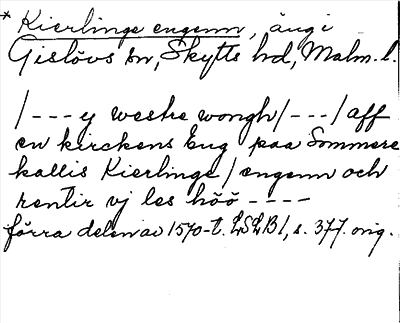 * Kierlinge engenn, äng i
Gislövs sn, Skytts hd, Malm. l.
/---y westre wongh/---/aff
en kirckens Eng paa Sommere
kallis Kierlinge/engenn och
rentir vj les höö ----
förra delen av 1570-t. LSLB 1, s. 377. orig.